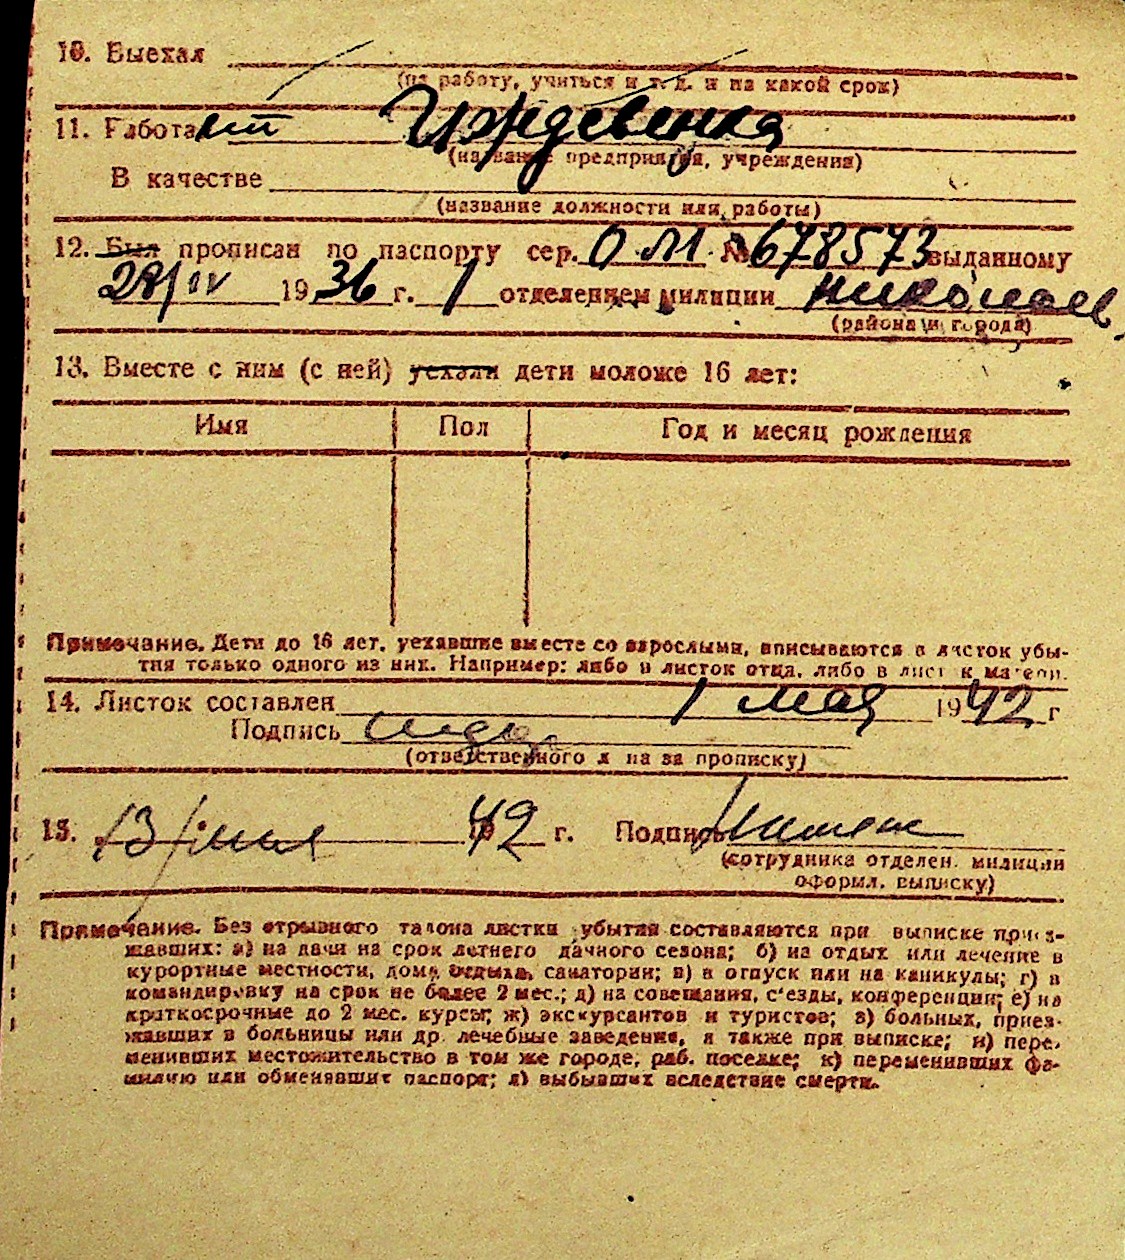 10. Выехал
(на работу, учиться и т. д. и на какой срок)
11. Работает Иждевенка
(название предприятия, учреждения)
В качестве
(название должности или работы)
12. Был прописан по паспорту сер. ОМ № 678573 выданному
28/IV 1936 г. 1 отделением милиции Николаев
(района и города)
13. Вместе с ним (с ней) уехали дети моложе 16 лет:
Имя Пол Год и месяц рождения
Примечание. Дети до 16 лет, уехавшие вместе со взрослыми, вписываются в листок убы-
тия только одного из них. Например: либо в листок отца, либо в листок матери.
14. Листок составлен 1 мая 1942 г
Подпись
(ответственного л на за прописку)
15. 13/ 1942 г. Подпись
(сотрудника отделен. милиции
оформл. выписку)
Примечание. Без отрывного талона листки убытия составляются при выписке приез-
жавших: а) на дачи на срок летнего дачного сезона; б) на отдых или лечение в
курортные местности, дома отдыха, санатории; в) в отпуск или на каникулы; г) в
командировку на срок не более 2 мес.; д) на совещания, с'езды, конференции; е) на
краткосрочные до 2 мес. курсы; ж) экскурсантов и туристов; з) больных, приез-
жавших в больницы или др. лечебные заведения, а также при выписке; и) пере-
менивших местожительство в том же городе, раб. поселке; к) переменивших фа-
милию или обменявших паспорт; л) выбывших вследствие смерти.